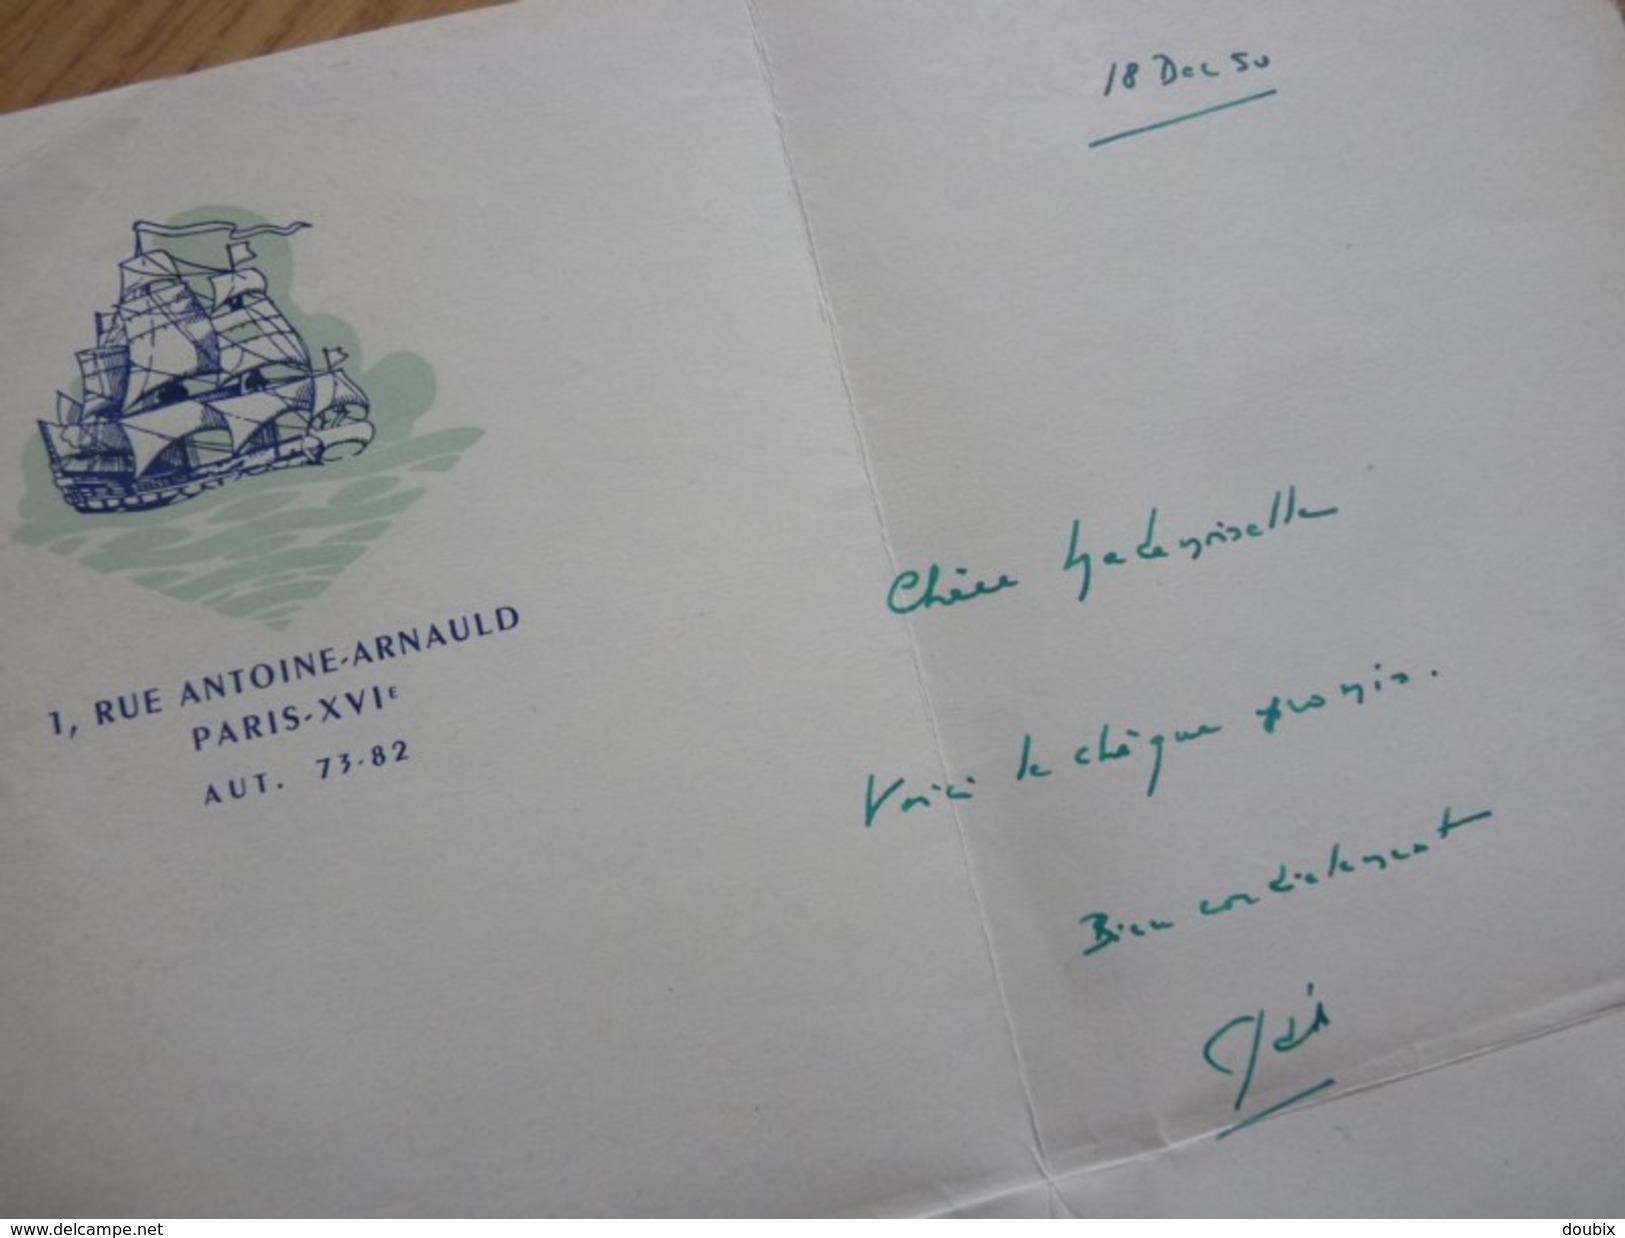 18 Dec 50
1, RUE ANTOINE-ARNAULD
PARIS-XVIE
AUT. 73-82
Chère Mademoiselle
Voici le chèque promis.
Bien cordialement
www.delcampe.net
doubix